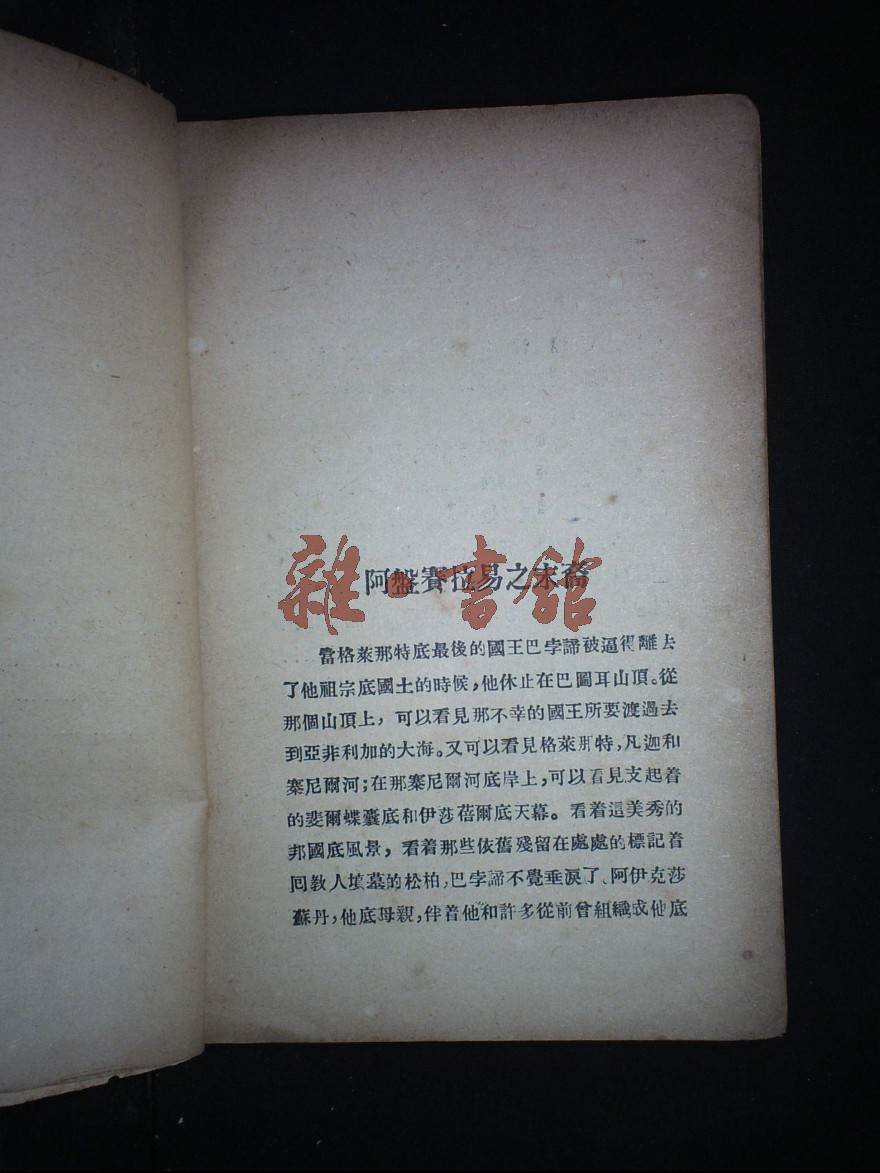 雜·書館
阿盤賽拉易之末裔
當格萊那特底最後的國王巴孛諦被逼得離去
了他祖宗底國土的時候，他休止在巴圖耳山頂。從
那個山頂上，可以看見那不幸的國王所要渡過去
到亞非利加的大海。又可以看見格萊那特，凡迦和
塞尼爾河；在那塞尼爾河底岸上，可以看見支起着
的斐爾蝶囊底和伊莎蓓爾底天幕。看着這美秀的
邦國底風景，看着那些依舊殘留在處處的標記着
回教人墳墓的松柏，巴孛諦不覺垂淚了、阿伊克莎
蘇丹，他底母親，伴着他和許多從前曾組織成他底